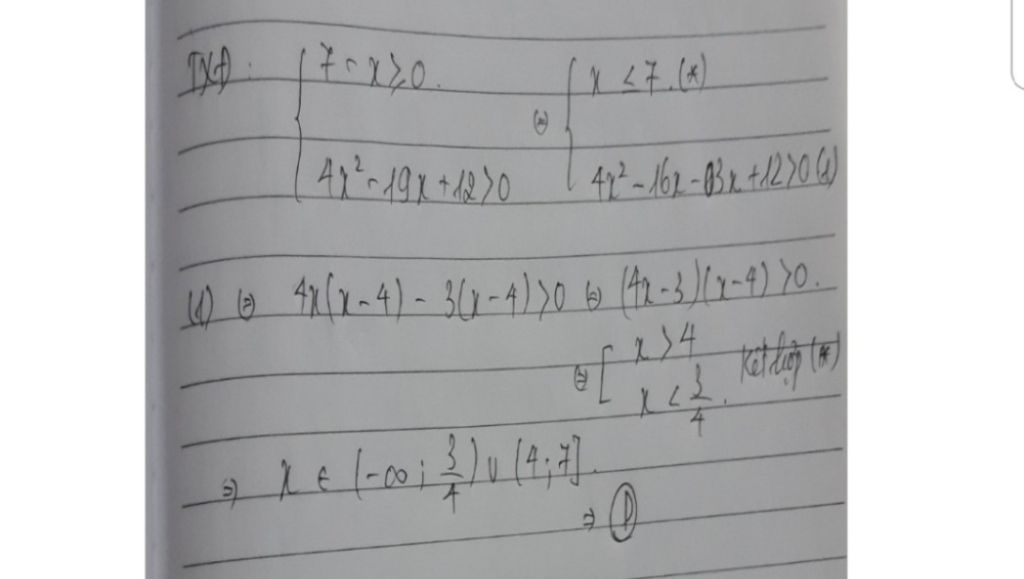 TXĐ: { 7 - x ≥ 0. ⇔ { x ≤ 7. (*)
4x² - 19x + 12 > 0 4x² - 16x - 3x + 12 > 0 (1)
(1) ⇔ 4x(x - 4) - 3(x - 4) > 0 ⇔ (4x - 3)(x - 4) > 0.
⇔ [ x > 4
x < 3/4. Kết hợp (*)
⇒ x ∈ (-∞; 3/4) ∪ (4; 7].
⇒ D